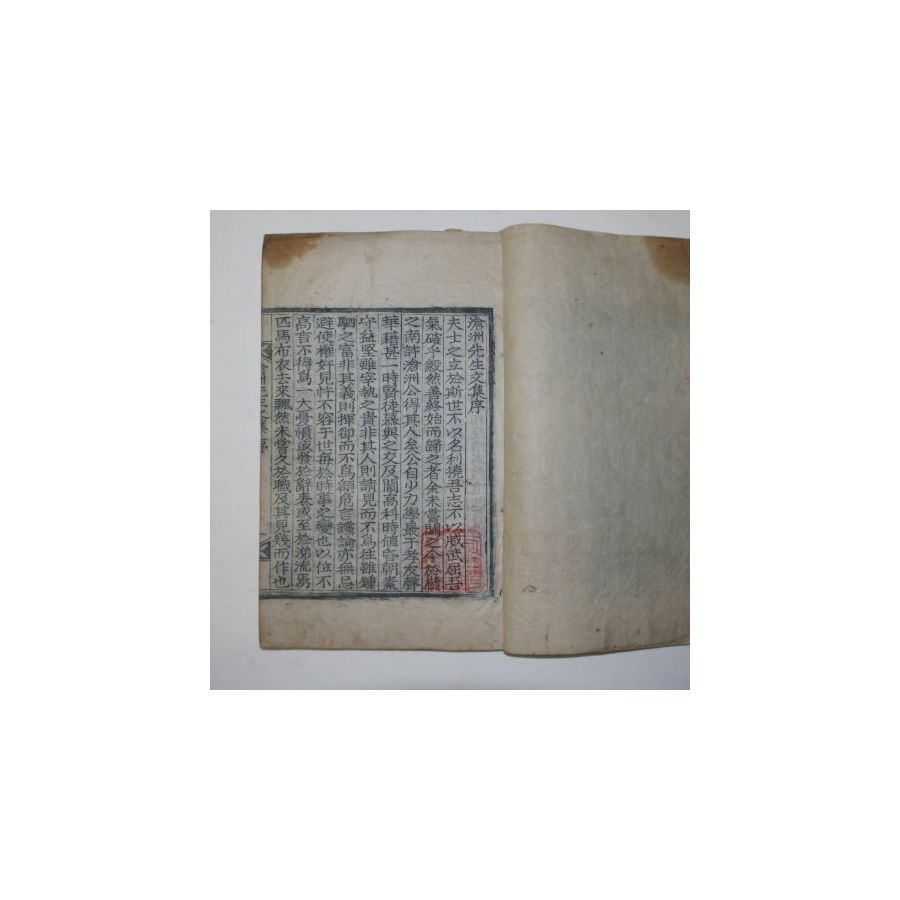 滄洲先生文集序
夫士之立於斯世不以名利撓吾志不以威武屈吾
氣確乎毅然善終始而歸之者余未嘗聞之今於
之南許滄洲公得其人矣公自少力學最于孝友聲
華藉甚一時賢徒慕與之交及闡高科時値昏朝素
守益堅雖宰執之貴非其人則請見而不爲往雖鍾
駟之富非其義則揮却而不爲顧危言讜論亦無忌
避使權奸見忤不容于世每於時事之變也以位不
高言不得爲一大憂憤或發於辭表或至於涕流焉
匹馬布衣去來飄然未嘗久於職及其見幾而作也